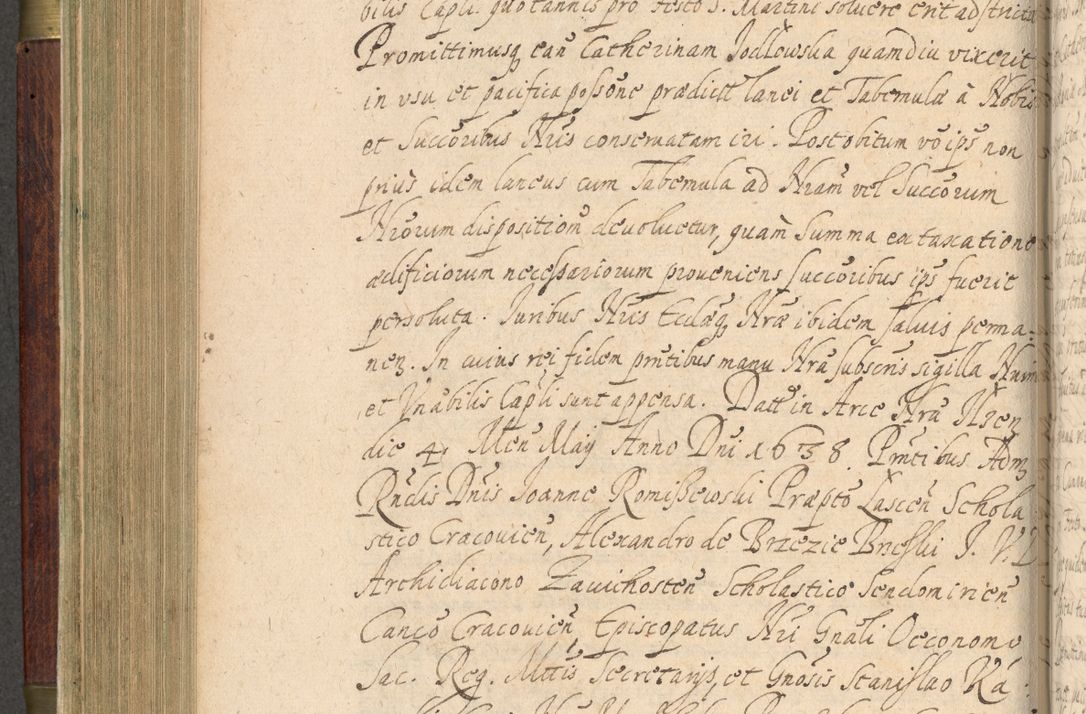 bilis Capli. quotannis pro festo S. Martini soluere erit adstricta
Promittimusq; ean̄ Catherinam Jodłowska quamdiu vixerit
in vsu et pacifica possone prædicti lanei et Tabernulæ à Nobis
et Succoribus Nris conseruatam iri. Post obitum vo ips̄ non
prius idem laneus cum Tabernula ad Nram vel Succorum
Nrorum disposition̄ deuoluetur, quam̄ summa ex taxatione
ædificiorum necessariorum proueniens succoribus ips̄ fuerit
persoluta. Juribus Nris Ecclæq; Nræ ibidem saluis perma-
nen. In cuius rei fidem prntibus manu Nra subscris sigilla Nrum
et Vnabilis Capli sunt appensa. Datt in Arce Nra Ilzen
die 4 Men̄ Maij Anno Dni 1638. Prntibus Adm
Rndis Dnis Joanne Romiszewski Præpto Lascen̄ Schola
stico Cracouien̄, Alexandro de Brzezie Brzeski J. V. D
Archidiacono Zawichosten̄ Scholastico Sendomirien̄
Canco Cracouien̄, Episcopatus Nri Gnali Oeconomo
Sac. Reg. Mttis Secretarijs, et Gnosis Stanislao Ka-